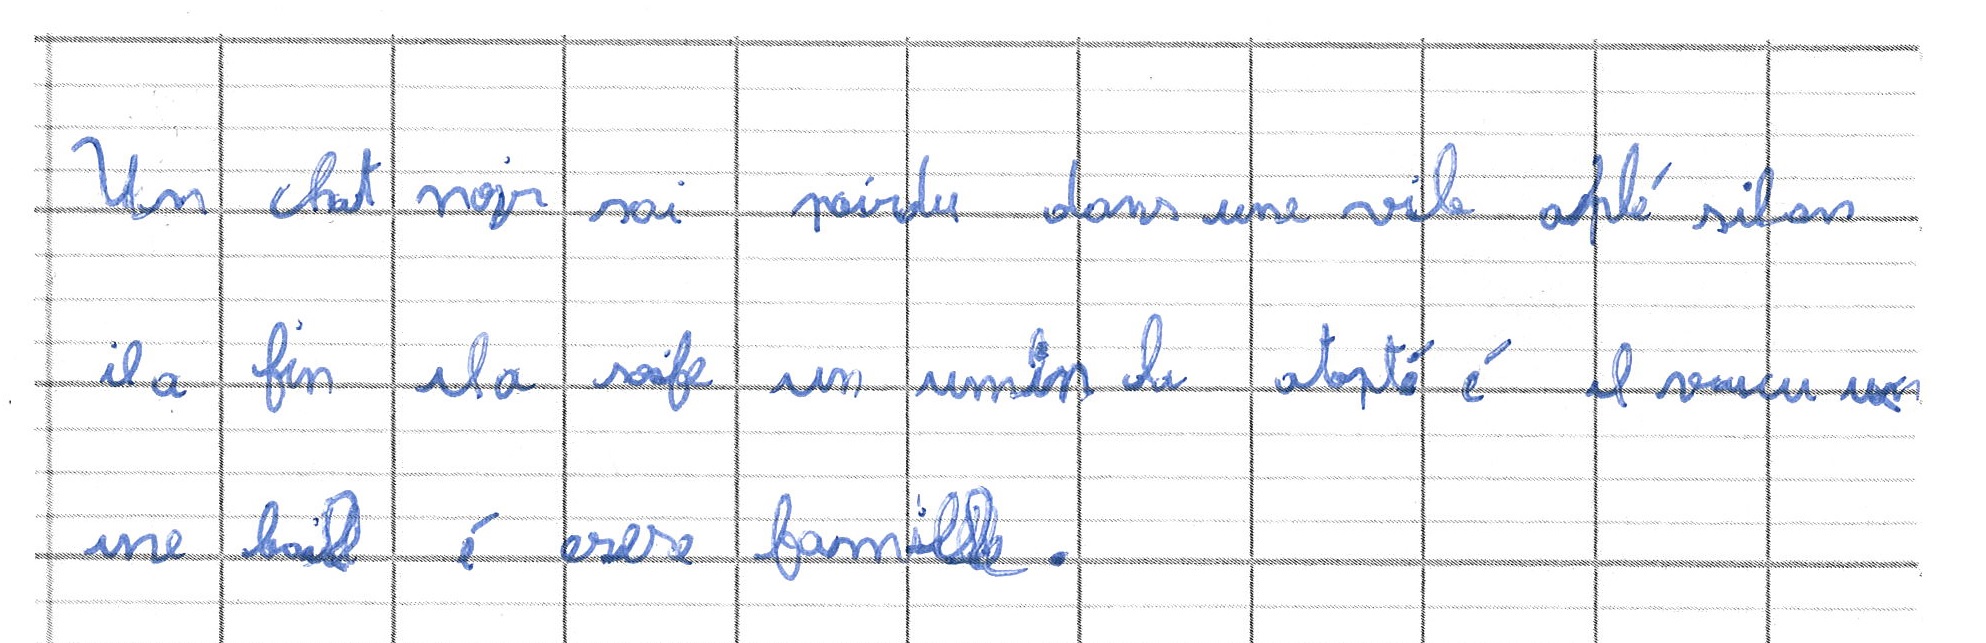 Un chat noir sai pairdu dans une vile aplé silan
il a fin il a soife un umin la atopté é il veucu
une baile é erere famille.